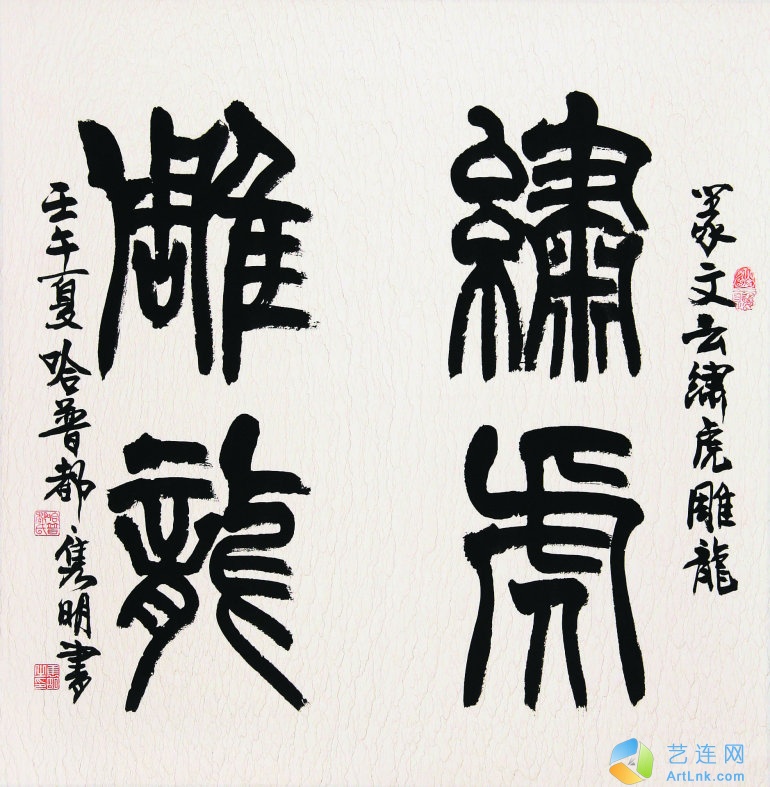 篆文云繡虎雕龍
繡虎
雕龍
壬午夏哈普都·隽明书
艺连网
ArtLnk.com